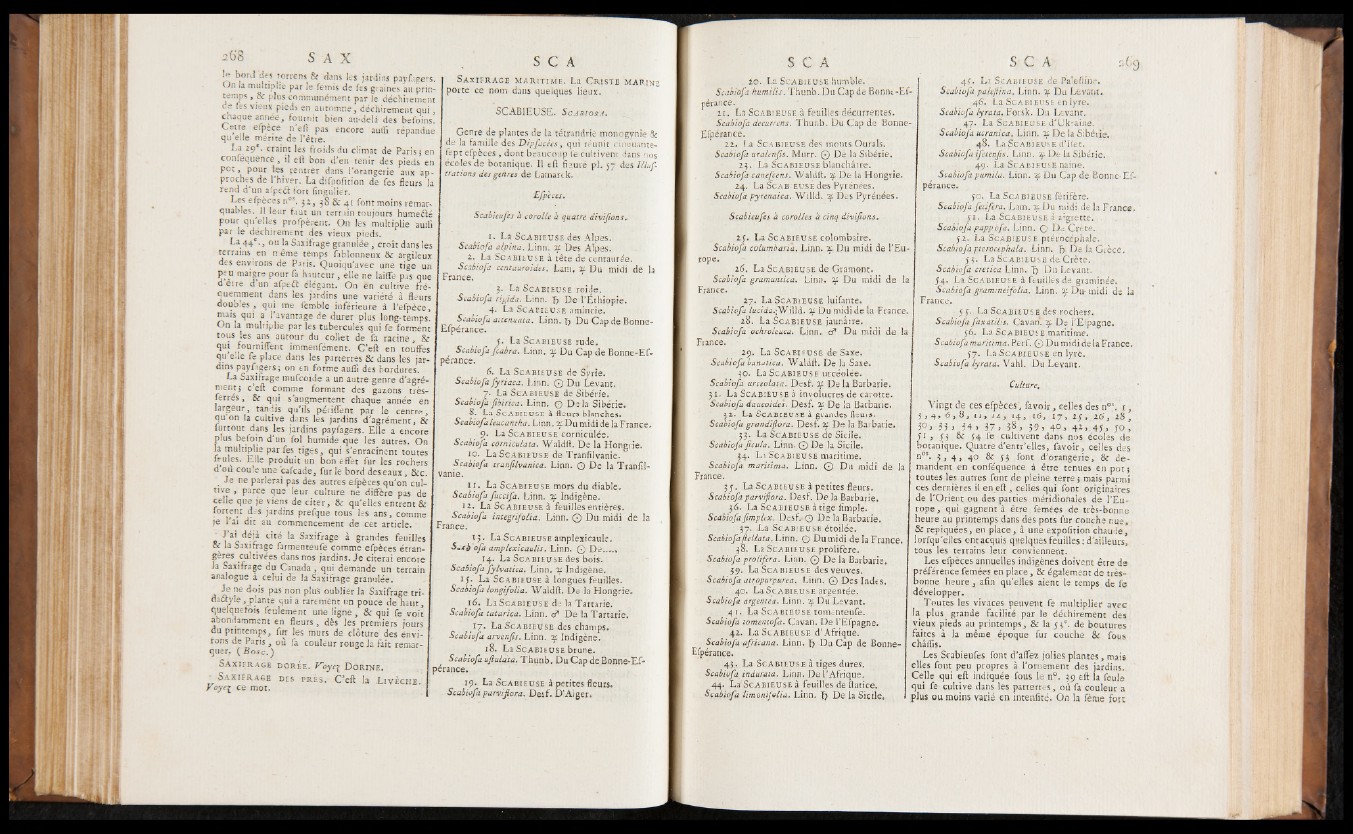 268 S A X
le bord des torrens & dans les jardins paysagers.
On la multiplie par le semis de ses graines au prin-
temps, & plus communément par le déchirement
de ses vieux pieds en automne, déchirement qui,
chaque année, fournit bien au-delà des besoins.
Cette espèce n'est pas encore aussi répandue
qu'elle mérite de l'être.
La 29e. craint les froids du climat de Paris; en
conséquence, il est bon d'en tenir des pieds en
pot, pour les rentrer dans l'orangerie aux ap-
proches de l'hiver. La disposition de ses fleurs la
rend d'un aspect fort singulier.
Les espèces nos. 32, 38 & 41 sont moins remar-
quables. Il leur faut un terrain toujours humecté
pour qu'elles prospèrent. On les multiplie aussi
par le déchirement des vieux pieds.
La 44e., ou la Saxifrage granulée, croît dans les
terrains en même temps sablonneux & argileux
des environs de Paris. Quoiqu'avec une tige un
peu maigre pour sa hauteur, elle ne laisse pas que
d'être d'un aspect élégant. On en cultive fré-
quemment dans les jardins une variété à fleurs
doubles, qui me semble inférieure à l'espèce,
mais qui a l'avantage de durer plus long-temps.
On la multiplie par les tubercules qui se forment
tous les ans autour du collet de sa racine, &
qui fournissent immensément. C'est en touffes
qu'elle se place dans les parterres & dans les jar-
dins paysagers; on en forme aussi des bordures.
La Saxifrage muscoïde a un autre genre d'agré-
ment; c'est comme formant des gazons très-
serrés, & qui s'augmentent chaque année en
largeur, tandis qu'ils périssent par le centre,
qu'on la cultive dans les jardins d'agrément, &
surtout dans les jardins paysagers. Elle a encore
plus besoin d'un sol humide que les autres. On
la multiplie par ses tiges, qui s'enracinent toutes
seules. Elle produit un bon effet sur les rochers
d'où coule une cascade, sur le bord des eaux, &c.
Je ne parlerai pas des autres espèces qu'on cul-
tive, parce que leur culture ne diffère pas de
celle que je viens de citer, & qu'elles entrent &
sortent des jardins presque tous les ans, comme
je l'ai dit au commencement de cet article.
J'ai déjà cité la Saxifrage à grandes feuilles
& la Saxifrage sarmenteuse comme espèces étran-
gères cultivées dans nos jardins. Je citerai encore
la Saxifrage du Canada, qui demande un terrain
analogue à celui de la Saxifrage granulée.
Je ne dois pas non plus oublier la Saxifrage tri-
dactyle, plante qui a rarement un pouce de haut,
quelquefois seulement une ligne, & qui se voit
abondamment en fleurs, dès les premiers jours
du printemps, sur les murs de clôture des envi-
rons de Paris, où sa couleur rouge la fait remar-
quer. (Bosc.)
SAXIFRAGE DORÉE. Voyez DORINE.
SAXIFRAGE DES PRÉS. C'est la LIVÈCHE.
Voyez ce mot.
S C A
SAXIFRAGE MARITIME. La CRISTE MARINE
porte ce nom dans quelques lieux.
SCABIEUSE. SCABIOSA.
Genre de plantes de la tétrandrie monogynie &
de la famille des Dipsacées, qui réunit cinquante-
sept espèces, dont beaucoup se cultivent dans nos
écoles de botanique. Il est figuré pl. 57 des Illus-
trations des genres de Lamarck.
Espèces.
Scabieuses à corolle à quatre divisions.
1. La SCABIEUSE des Alpes.
Scabiosa alpina. Linn. ♃ Des Alpes.
2. La SCABIEUSE à tête de centaurée.
Scabiosa centauroides. Lam. ♃ Du midi de la
France.
3. La SCABIEUSE roide.
Scabiosa rigida. Linn. ♄ De l'Éthiopie.
4. La SCABIEUSE amincie.
Scabiosa attenuata. Linn. ♄ Du Cap de Bonne-
Espérance.
5. La SCABIEUSE rude.
Scabiosa scabra. Linn. ♃ Du Cap de Bonne-Es-
pérance.
6. La SCABIEUSE de Syrie.
Scabiosa syriaca. Linn. ☉ Du Levant.
7. La SCABIEUSE de Sibérie.
Scabiosa sibirica. Linn. ☉ De la Sibérie.
8. La SCABIEUSE à fleurs blanches.
Scabiosa leucantha. Linn. ♃ Du midi de la France.
9. La SCABIEUSE corniculée.
Scabiosa corniculata. Waldst. De la Hongrie.
10. La SCABIEUSE de Transilvanie.
Scabiosa transilvanica. Linn. ☉ De la Transil-
vanie.
11. La SCABIEUSE mors du diable.
Scabiosa succisa. Linn. ♃ Indigène.
12. La SCABIEUSE à feuilles entières.
Scabiosa integrifolia. Linn. ☉ Du midi de la
France.
13. La SCABIEUSE amplexicaule.
Scabiosa amplexicaulis. Linn. ☉ De.....
14. La SCABIEUSE des bois.
Scabiosa sylvatica. Linn. ♃ Indigène.
15. La SCABIEUSE à longues feuilles.
Scabiosa longifolia. Waldst. De la Hongrie.
16. La SCABIEUSE de la Tartarie.
Scabiosa tatarica. Linn. ♂ De la Tartarie.
17. La SCABIEUSE des champs.
Scabiosa arvensis. Linn. ♃ Indigène.
18. La SCABIEUSE brune.
Scabiosa ustulata. Thunb. Du Cap de Bonne-Es-
pérance.
19. La SCABIEUSE à petites fleurs.
Scabiosa parviflora. Desf. D'Alger.
S C A
20. La SCABIEUSE humble.
Scabiosa humilis. Thunb. Du Cap de Bonne-Es-
pérance.
21. La SCABIEUSE à feuilles décurrentes.
Scabiosa decurrens. Thunb. Du Cap de Bonne-
Espérance.
22. La SCABIEUSE des monts Ourals.
Scabiosa uralensis. Murr. ☉ De la Sibérie.
23. La SCABIEUSE blanchâtre.
Scabiosa canescens. Waldst. ♃ De la Hongrie.
24. La SCABIEUSE des Pyrénées.
Scabiosa pyrenaica. Willd. ♃ Des Pyrénées.
Scabieuses à corolles à cinq divisions.
25. La SCABIEUSE colombaire.
Scabiosa columbaria. Linn. ♃ Du midi de l'Eu-
rope.
26. La SCABIEUSE de Gramont.
Scabiosa gramuntia. Linn. ♃ Du midi de la
France.
27. La SCABIEUSE luisante.
Scabiosa lucida. Willd. ♃ Du midi de la France.
28. La SCABIEUSE jaunâtre.
Scabiosa ochroleuca. Linn. ♂ Du midi de la
France.
29. La SCABIEUSE de Saxe.
Scabiosa banatica. Waldst. De la Saxe.
30. La SCABIEUSE urcéolée.
Scabiosa urceolata. Desf. ♃ De la Barbarie.
31. La SCABIEUSE à involucres de carotte.
Scabiosa daucoides. Desf. ♃ De la Barbarie.
32. La SCABIEUSE à grandes fleurs.
Scabiosa grandiflora. Desf. ♃ De la Barbarie.
33. La SCABIEUSE de Sicile.
Scabiosa sicula. Linn. ☉ De la Sicile.
34. La SCABIEUSE maritime.
Scabiosa maritima. Linn. ☉ Du midi de la
France.
35. La SCABIEUSE à petites fleurs.
Scabiosa parviflora. Desf. De la Barbarie.
36. La SCABIEUSE à tige simple.
Scabiosa simplex. Desf. ☉ De la Barbarie.
37. La SCABIEUSE étoilée.
Scabiosa stellata. Linn. ☉ Du midi de la France.
38. La SCABIEUSE prolifère.
Scabiosa prolifera. Linn. ☉ De la Barbarie.
39. La SCABIEUSE des veuves.
Scabiosa atropurpurea. Linn. ☉ Des Indes.
40. La SCABIEUSE argentée.
Scabiosa argentea. Linn. ♃ Du Levant.
41. La SCABIEUSE tomenteuse.
Scabiosa tomentosa. Cavan. De l'Espagne.
42. La SCABIEUSE d'Afrique.
Scabiosa africana. Linn. ♄ Du Cap de Bonne-
Espérance.
43. La SCABIEUSE à tiges dures.
Scabiosa indurata. Linn. De l'Afrique.
44. La SCABIEUSE à feuilles de statice.
Scabiosa limonifolia. Linn. ♄ De la Sicile.
S C A 269
45. La SCABIEUSE de Palestine.
Scabiosa palestina. Linn. ♃ Du Levant.
46. La SCABIEUSE en lyre.
Scabiosa lyrata. Forsk. Du Levant.
47. La SCABIEUSE d'Ukraine.
Scabiosa ucranica. Linn. ♃ De la Sibérie.
48. La SCABIEUSE d'Iset.
Scabiosa isetensis. Linn. ♃ De la Sibérie.
49. La SCABIEUSE naine.
Scabiosa pumila. Linn. ♃ Du Cap de Bonne-Es-
pérance.
50. La SCABIEUSE sétifère.
Scabiosa setifera. Lam. ♃ Du midi de la France.
51. La SCABIEUSE à aigrette.
Scabiosa papposa. Linn. ☉ De Crète.
52. La SCABIEUSE ptérocéphale.
Scabiosa pterocephala. Linn. ♄ De la Grèce.
53. La SCABIEUSE de Crète.
Scabiosa cretica. Linn. ♄ Du Levant.
54. La SCABIEUSE à feuilles de graminée.
Scabiosa graminifolia. Linn. ♃ Du midi de la
France.
55. La SCABIEUSE des rochers.
Scabiosa saxatilis. Cavan. ♃ De l'Espagne.
56. La SCABIEUSE maritime.
Scabiosa maritima. Pers. ☉ Du midi de la France.
57. La SCABIEUSE en lyre.
Scabiosa lyrata. Vahl. Du Levant.
Culture.
Vingt de ces espèces, savoir, celles des nos. 1,
3, 4, 6, 8, 11, 12, 14, 16, 17, 25, 26, 28,
30, 33, 34, 37, 38, 39, 40, 42, 45, 50,
51, 53 & 54 se cultivent dans nos écoles de
botanique. Quatre d'entr'elles, savoir, celles des
nos. 3, 4, 40 & 53 sont d'orangerie, & de-
mandent en conséquence à être tenues en pot;
toutes les autres sont de pleine terre; mais parmi
ces dernières il en est, celles qui sont originaires
de l'Orient ou des parties méridionales de l'Eu-
rope, qui gagnent à être semées de très-bonne
heure au printemps dans des pots sur couche nue,
& repiquées, en place, à une exposition chaude,
lorsqu'elles ont acquis quelques feuilles: d'ailleurs,
tous les terrains leur conviennent.
Les espèces annuelles indigènes doivent être de
préférence semées en place, & également de très-
bonne heure, afin qu'elles aient le temps de se
développer.
Toutes les vivaces peuvent se multiplier avec
la plus grande facilité par le déchirement des
vieux pieds au printemps, & la 53e. de boutures
faites à la même époque sur couche & sous
châssis.
Les Scabieuses sont d'assez jolies plantes, mais
elles sont peu propres à l'ornement des jardins.
Celle qui est indiquée sous le no. 39 est la seule
qui se cultive dans les parterres, où sa couleur a
plus ou moins varié en intensité. On la sème fort